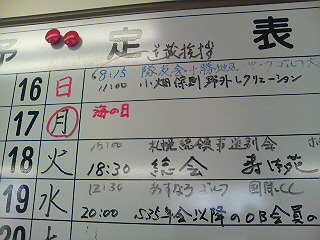 予定表
16 日 8:15 隊友会十勝地区パークゴルフ大
11:00 小畑保則野外レクリエーション
17 月 海の日
18 火 15:00 札幌総領事送別会
18:30 総会
19 水 12:30 あすなろゴルフ 国際CC
20:00 S35年会以降のOB会員の
20